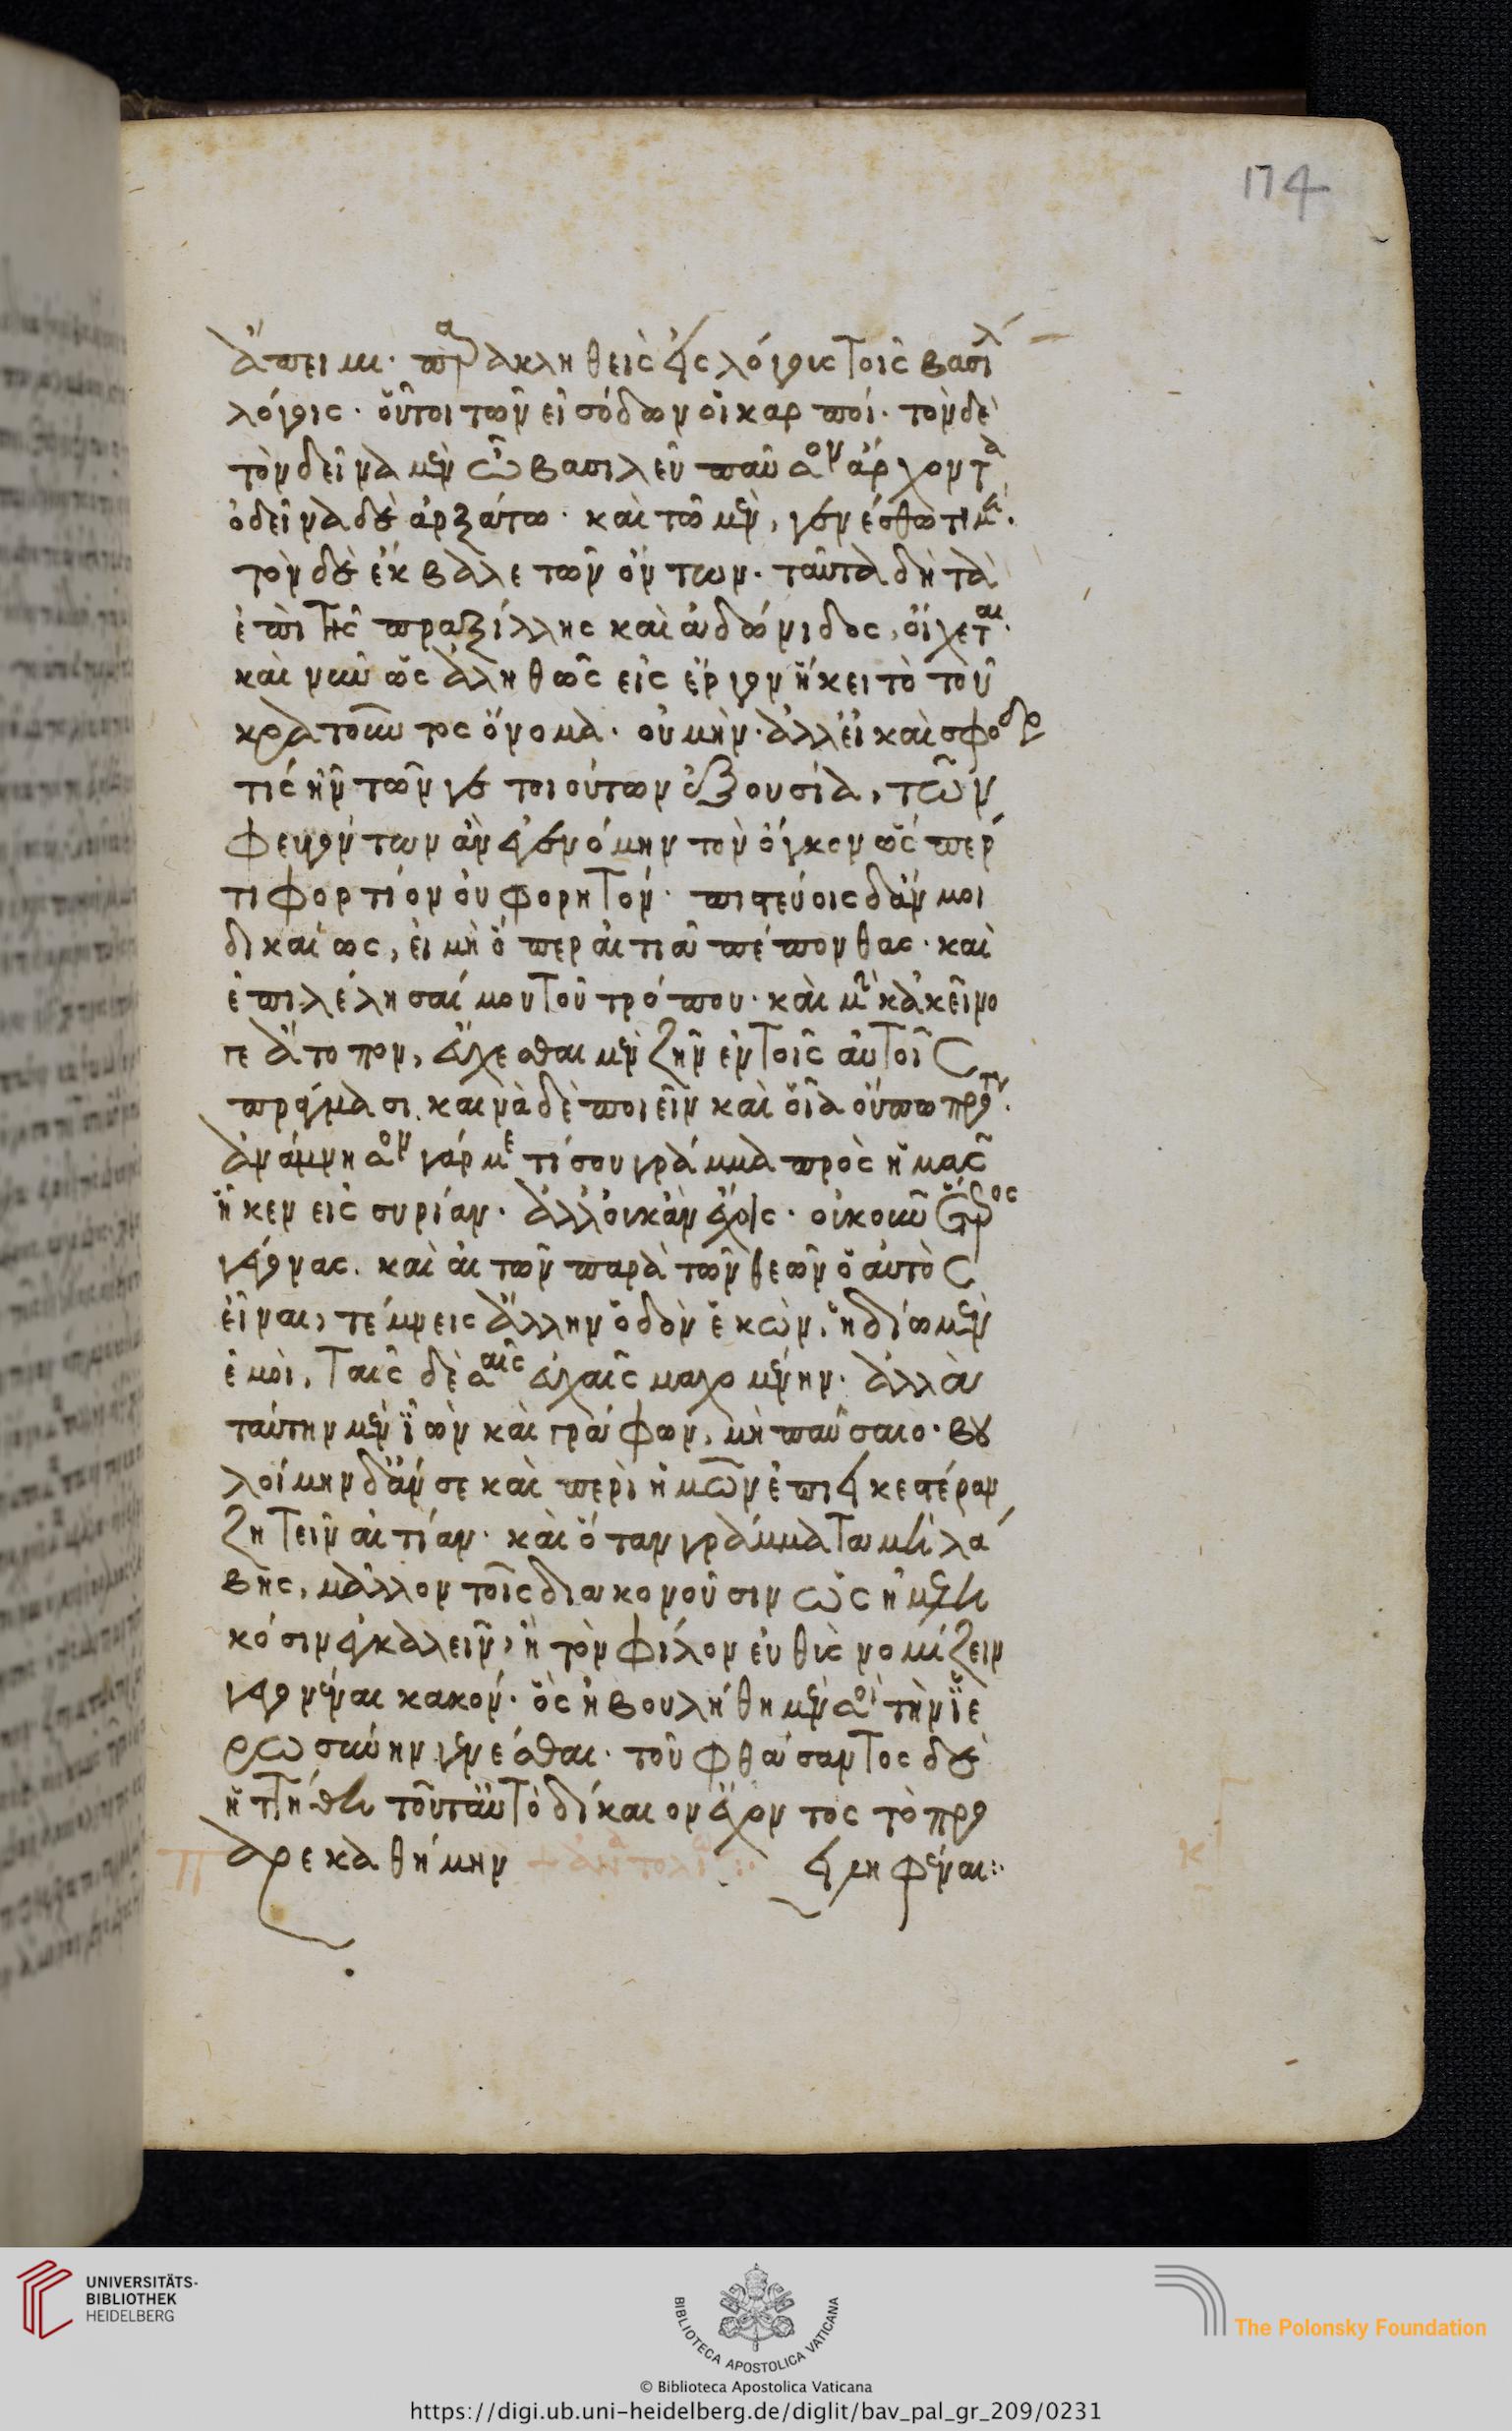 174
ἄπειμι. παρακληθεὶς ἐς λόγους τοῖς βασιλ
λόγοις. οὗτοι τῶν εἰσόδων οἱ καρποί. τὸν δὲ
τὸν δεῖνα μὲν ὦ βασιλεῦ παῦσον ἄρχοντα
ὁ δεῖνα δὲ ἀρξάτω. καὶ τῷ μὲν, γενέσθω τιμή.
τὸν δὲ ἔκβαλε τῶν ὄντων. ταῦτα δὴ τὰ
ἐπὶ τῆς πραξίλλης καὶ ἀδώνιδος, οἴχεται.
καὶ νῦν ὡς ἀληθῶς εἰς ἔργον ἥκει τὸ τοῦ
κρατοῦντος ὄνομα. οὐ μὴν. ἀλλ' εἰ καὶ σφοδρ
τίς ἦν τῶν γε τοιούτων ἐξουσία, τῶν
φευγόντων ἂν ἐγενόμην τὸν ὄγκον ὥσπερ
τι φορτίον οὐ φορητόν. πιστεύοις δ' ἄν μοι
δικαίως, εἰ μὴ ὅπερ αἰτιᾷ πέπονθας. καὶ
ἐπιλέλησαί μου τοῦ τρόπου. καὶ μὴν κἀκεῖνο
γε ἄτοπον, εὔχεσθαι μὲν ζῆν ἐν τοῖς αὐτοῖς
πράγμασι. καινὰ δὲ ποιεῖν καὶ οἷα οὔπω πρότ.
ἀνάμνησον γάρ με τί σου γράμμα πρὸς ἡμᾶς
ἧκεν εἰς συρίαν. ἀλλ' οὐκ ἂν ἔχοις. οἰκοῦν
γέγονας. καὶ αἰτῶν παρὰ τῶν θεῶν ὁ αὐτὸς
εἶναι, τέμνεις ἄλλην ὁδὸν ἑκὼν. ἡδίω μὲν
ἐμοὶ, ταῖς δὲ σαῖς εὐχαῖς μαχομένην. ἀλλὰ
ταύτην μὲν ἰὼν καὶ γράφων, μὴ παύσαιο. βου
λοίμην δ' ἄν σε καὶ περὶ ἡμῶν ἐπιεικεστέραν
ζητεῖν αἰτίαν. καὶ ὅταν γράμματα μὴ λά
βῃς, μᾶλλον τοῖς διακονοῦσιν ὡς ἠμελη
κόσιν ἐγκαλεῖν, ἢ τὸν φίλον εὐθὺς νομίζειν
γεγονέναι κακόν. ὃς ἠβουλήθη μὲν σοι τὴν ἱε
ρωσύνην γενέσθαι. τοῦ φθάσαντος δὲ
ἡττήθη τοῦτ' αὐτὸ δίκαιον ἔχοντος τὸ προ
αρεκαθήμην + ἀνατολί :· εἰληφέναι:·
UNIVERSITÄTS-
BIBLIOTHEK
HEIDELBERG
BIBLIOTECA APOSTOLICA VATICANA
The Polonsky Foundation
© Biblioteca Apostolica Vaticana
https://digi.ub.uni-heidelberg.de/diglit/bav_pal_gr_209/0231